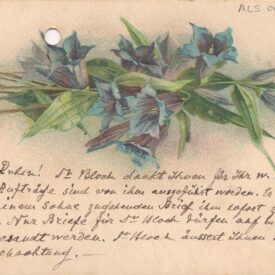 ALS
Dr Bloch dankt Ihnen für Ihr w.
Aufträge sind von ihm ausgeführt worden.
einem sohne zugehenden Brief ihm sofort
Nur Briefe für Dr Bloch dürfen auf
gesandt werden. Dr Bloch äussert Ihnen